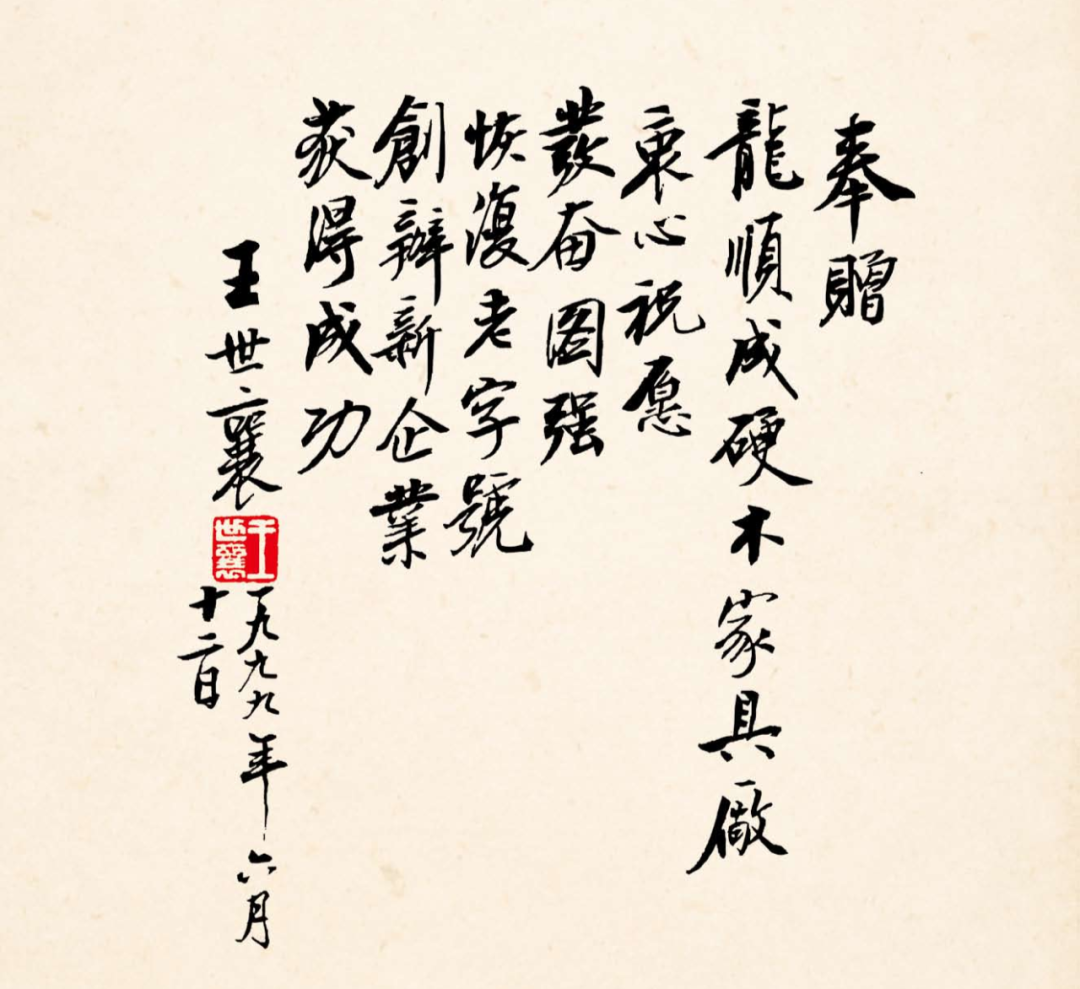 奉贈
龍順成硬木家具廠
衷心祝愿
發奋图强
恢復老字號
創辦新企業
获得成功
王世襄
王世襄
一九九九年六月
十二日